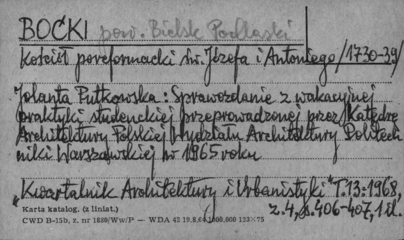 BOĆKI pow. Bielsk Podlaski
Kościół poreformacki św. Józefa i Antoniego /1730-39/
Jolanta Putkowska: Sprawozdanie z wakacyjnej
praktyki studenckiej przeprowadzonej przez Katedrę
Architektury Polskiej Wydziału Architektury Politech
niki Warszawskiej w 1965 roku
"Kwartalnik Architektury i Urbanistyki" T.13:1968,
z.4, s.406-407, 1 il.
Karta katalog. (z liniat.)
CWD B-15b, z. nr 1880/Ww/P — WDA 42 19.8.64 1.000.000 125×75